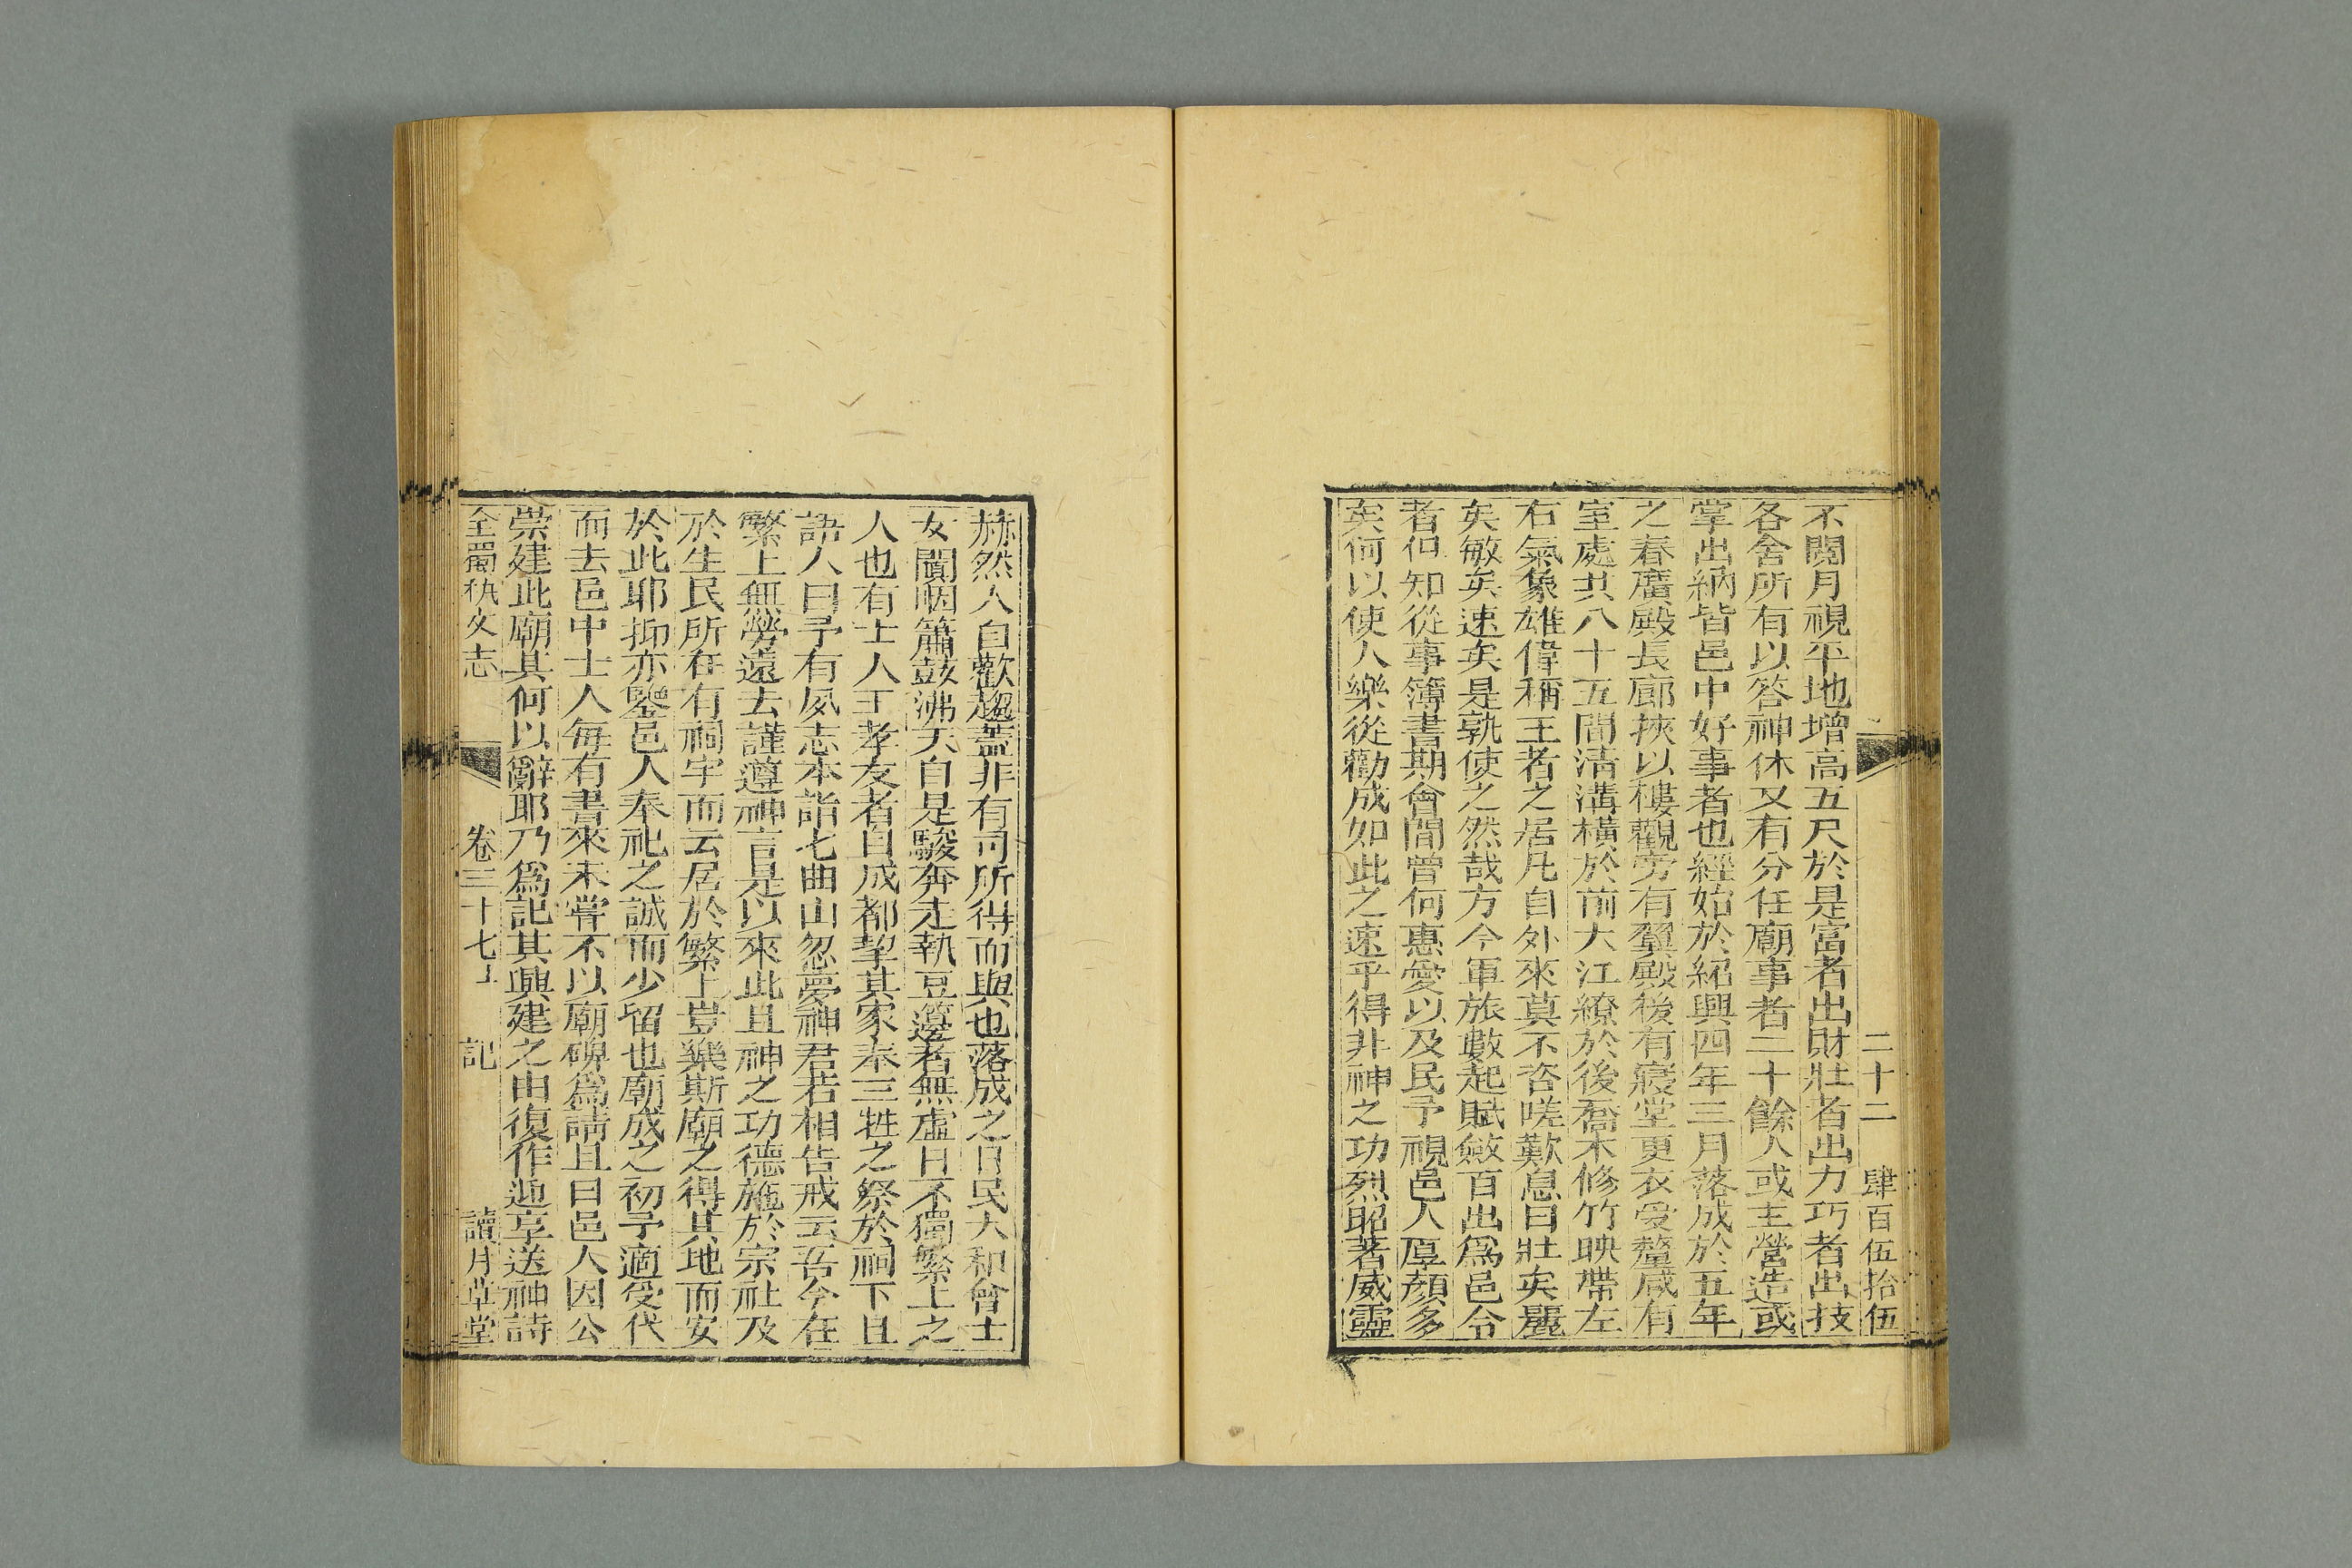 二十二 肆百伍拾伍
不閱月視平地增高五尺於是富者出財壯者出力巧者出技
各舍所有以答神休又有分任廟事者二十餘人或主營造或
掌出納皆邑中好事者也經始於紹興四年三月落成於五年
之春廣殿長廊挾以樓觀旁有翼殿後有寢堂更衣受釐咸有
室處共八十五間清溝橫於前大江繚於後喬木修竹映帶左
右氣象雄偉稱王者之居凡自外來莫不咨嗟歎息曰壯矣麗
矣敏矣速矣是孰使之然哉方今軍旅數起賦斂百出爲邑令
者但知從事簿書期會間曾何惠愛以及民予視邑人厚顏多
矣何以使人樂從勸成如此之速乎得非神之功烈昭著威靈
赫然人自歡趨蓋非有司所得而與也落成之日民大和會士
女闐咽簫鼓沸天自是駿奔走執豆籩者無虛日不獨繁上之
人也有士人王孝友者自成都挈其家奉三牲之祭於祠下且
語人曰予有夙志本詣七曲山忽夢神君若相告戒云吾今在
繁上無勞遠去謹遵神言是以來此且神之功德施於宗社及
於生民所在有祠宇而云居於繁上豈樂斯廟之得其地而安
於此耶抑亦鑒邑人奉祀之誠而少留也廟成之初予適受代
而去邑中士人每有書來未嘗不以廟碑爲請且曰邑人因公
崇建此廟其何以辭耶乃爲記其興建之由復作迎享送神詩
全蜀秇文志 卷三十七上 記 讀月草堂